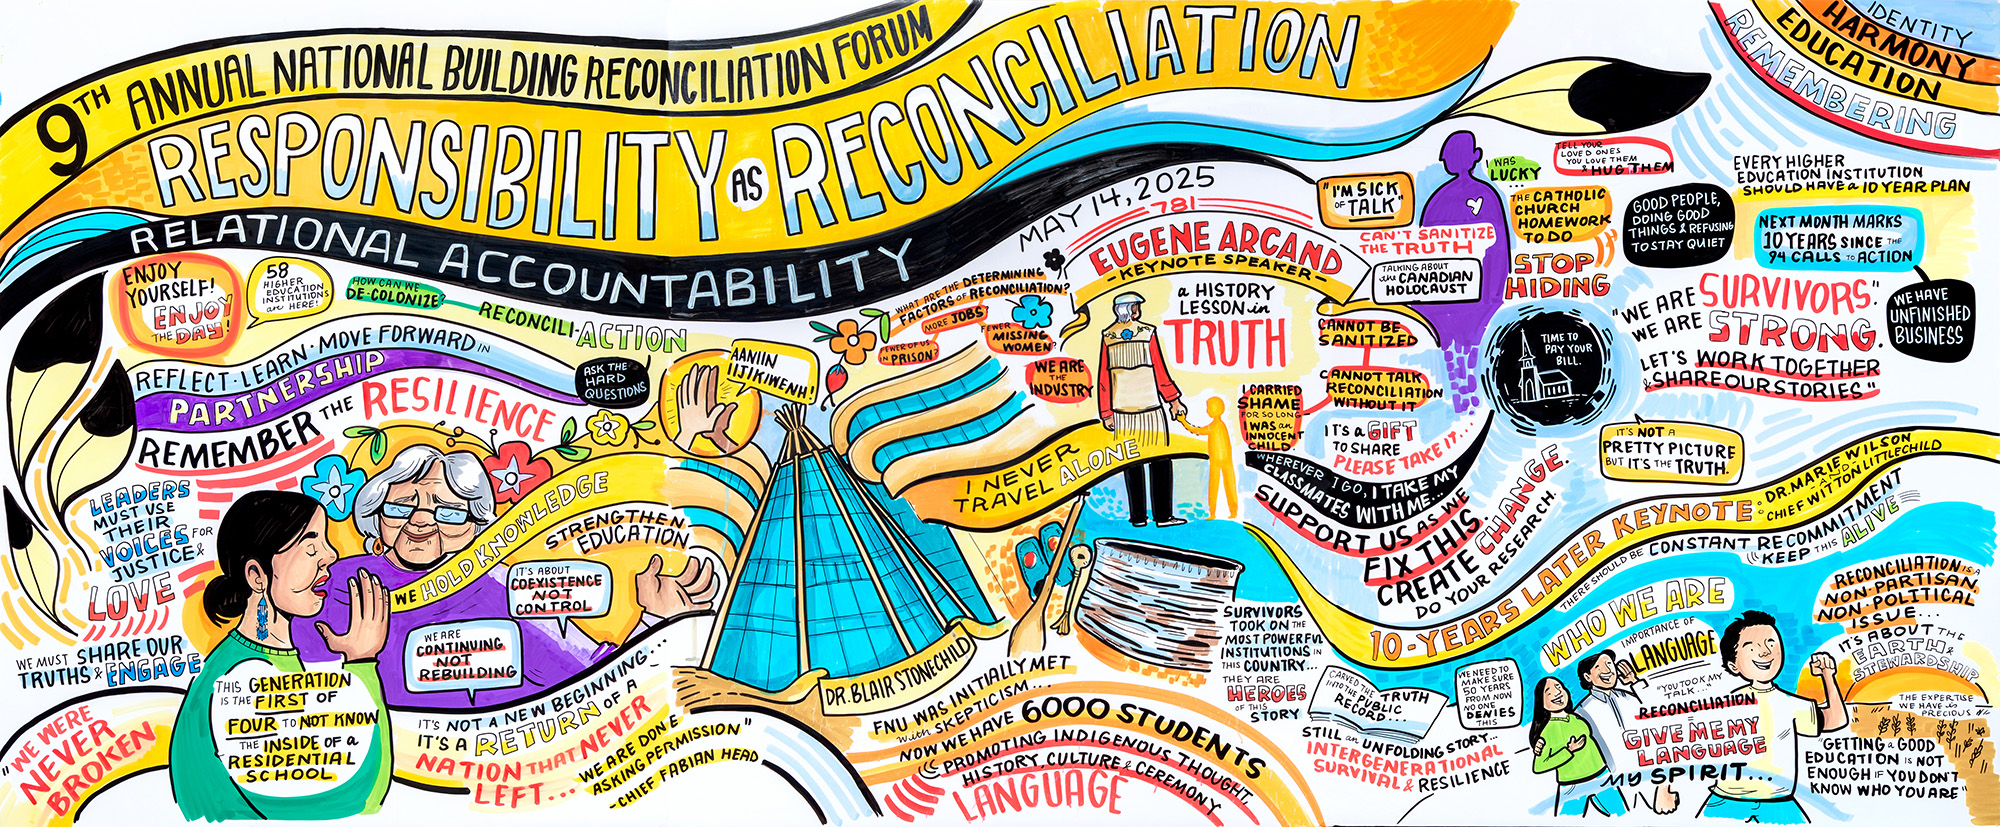 9TH ANNUAL NATIONAL BUILDING RECONCILIATION FORUM
RESPONSIBILITY AS RECONCILIATION
RELATIONAL ACCOUNTABILITY
MAY 14, 2025
ENJOY
YOURSELF!
ENJOY
THE DAY!
58
HIGHER
EDUCATION
INSTITUTIONS
are HERE!
HOW CAN WE
DE-COLONIZE?
RECONCILI-ACTION
REFLECT · LEARN · MOVE FORWARD IN
PARTNERSHIP
REMEMBER THE RESILIENCE
ASK THE
HARD
QUESTIONS
AANIIN
IIJIKIWENH!
LEADERS
MUST USE
THEIR
VOICES FOR
JUSTICE &
LOVE
WE MUST SHARE OUR
TRUTHS & ENGAGE
"WE WERE
NEVER
BROKEN
THIS GENERATION
IS THE FIRST OF
FOUR TO NOT KNOW
THE INSIDE OF a
RESIDENTIAL
SCHOOL
WE HOLD KNOWLEDGE
STRENGTHEN
EDUCATION
IT'S ABOUT
COEXISTENCE
NOT
CONTROL
WE ARE
CONTINUING
NOT
REBUILDING
IT'S NOT A NEW BEGINNING...
IT'S A RETURN OF A
NATION THAT NEVER
LEFT...
WE ARE DONE
ASKING PERMISSION"
-CHIEF FABIAN HEAD
DR. BLAIR STONECHILD
FNU WAS INITIALLY MET
with SKEPTICISM...
NOW WE HAVE 6000 STUDENTS
PROMOTING INDIGENOUS THOUGHT,
HISTORY, CULTURE & CEREMONY
LANGUAGE
WHAT ARE THE DETERMINING
FACTORS OF RECONCILIATION?
MORE JOBS?
FEWER OF US
IN PRISON?
FEWER
MISSING
WOMEN?
WE ARE
THE
INDUSTRY
781
EUGENE ARCAND
-KEYNOTE SPEAKER-
a HISTORY
LESSON in
TRUTH
I NEVER
TRAVEL ALONE
"I'M SICK
OF TALK"
CAN'T SANITIZE
THE TRUTH
TALKING ABOUT
the CANADIAN
HOLOCAUST
CANNOT BE
SANITIZED
CANNOT TALK
RECONCILIATION
WITHOUT IT
I CARRIED
SHAME
FOR SO LONG
I WAS an
INNOCENT
CHILD.
IT'S a GIFT
TO SHARE
PLEASE TAKE IT....
WHEREVER I GO, I TAKE MY
CLASSMATES WITH ME...
SUPPORT US AS WE
FIX THIS.
CREATE CHANGE.
DO YOUR RESEARCH.
SURVIVORS
TOOK ON THE
MOST POWERFUL
INSTITUTIONS IN
THIS COUNTRY...
THEY ARE
HEROES
OF THIS
STORY
I WAS
LUCKY
...
TELL YOUR
LOVED ONES
YOU LOVE THEM
& HUG THEM
THE CATHOLIC
CHURCH
HOMEWORK
TO DO
STOP
HIDING
GOOD PEOPLE,
DOING GOOD
THINGS & REFUSING
TO STAY QUIET
EVERY HIGHER
EDUCATION INSTITUTION
SHOULD HAVE a 10 YEAR PLAN
NEXT MONTH MARKS
10 YEARS SINCE THE
94 CALLS TO ACTION
WE HAVE
UNFINISHED
BUSINESS
TIME TO
PAY YOUR
BILL.
"WE ARE SURVIVORS".
WE ARE STRONG.
LET'S WORK TOGETHER
& SHARE OUR STORIES"
IT'S NOT A
PRETTY PICTURE
BUT IT'S THE TRUTH.
IDENTITY
HARMONY
EDUCATION
REMEMBERING
10-YEARS LATER KEYNOTE: DR. MARIE WILSON
AND
CHIEF WITTON LITTLECHILD
THERE SHOULD BE CONSTANT RECOMMITMENT
KEEP THIS ALIVE
CARVED THE TRUTH
INTO THE PUBLIC
RECORD...
WE NEED TO
MAKE SURE
50 YEARS
FROM NOW
NO ONE
DENIES
THIS
STILL an UNFOLDING STORY...
INTERGENERATIONAL
SURVIVAL & RESILIENCE
WHO WE ARE
IMPORTANCE OF
LANGUAGE
"YOU TOOK MY
TALK..."
RECONCILIATION
GIVE ME MY
LANGUAGE
MY SPIRIT...
RECONCILIATION IS A
NON-PARTISAN,
NON-POLITICAL
ISSUE...
IT'S ABOUT THE
EARTH &
STEWARDSHIP
THE EXPERTISE
WE HAVE IS
PRECIOUS
"GETTING a GOOD
EDUCATION IS NOT
ENOUGH IF YOU DON'T
KNOW WHO YOU ARE"